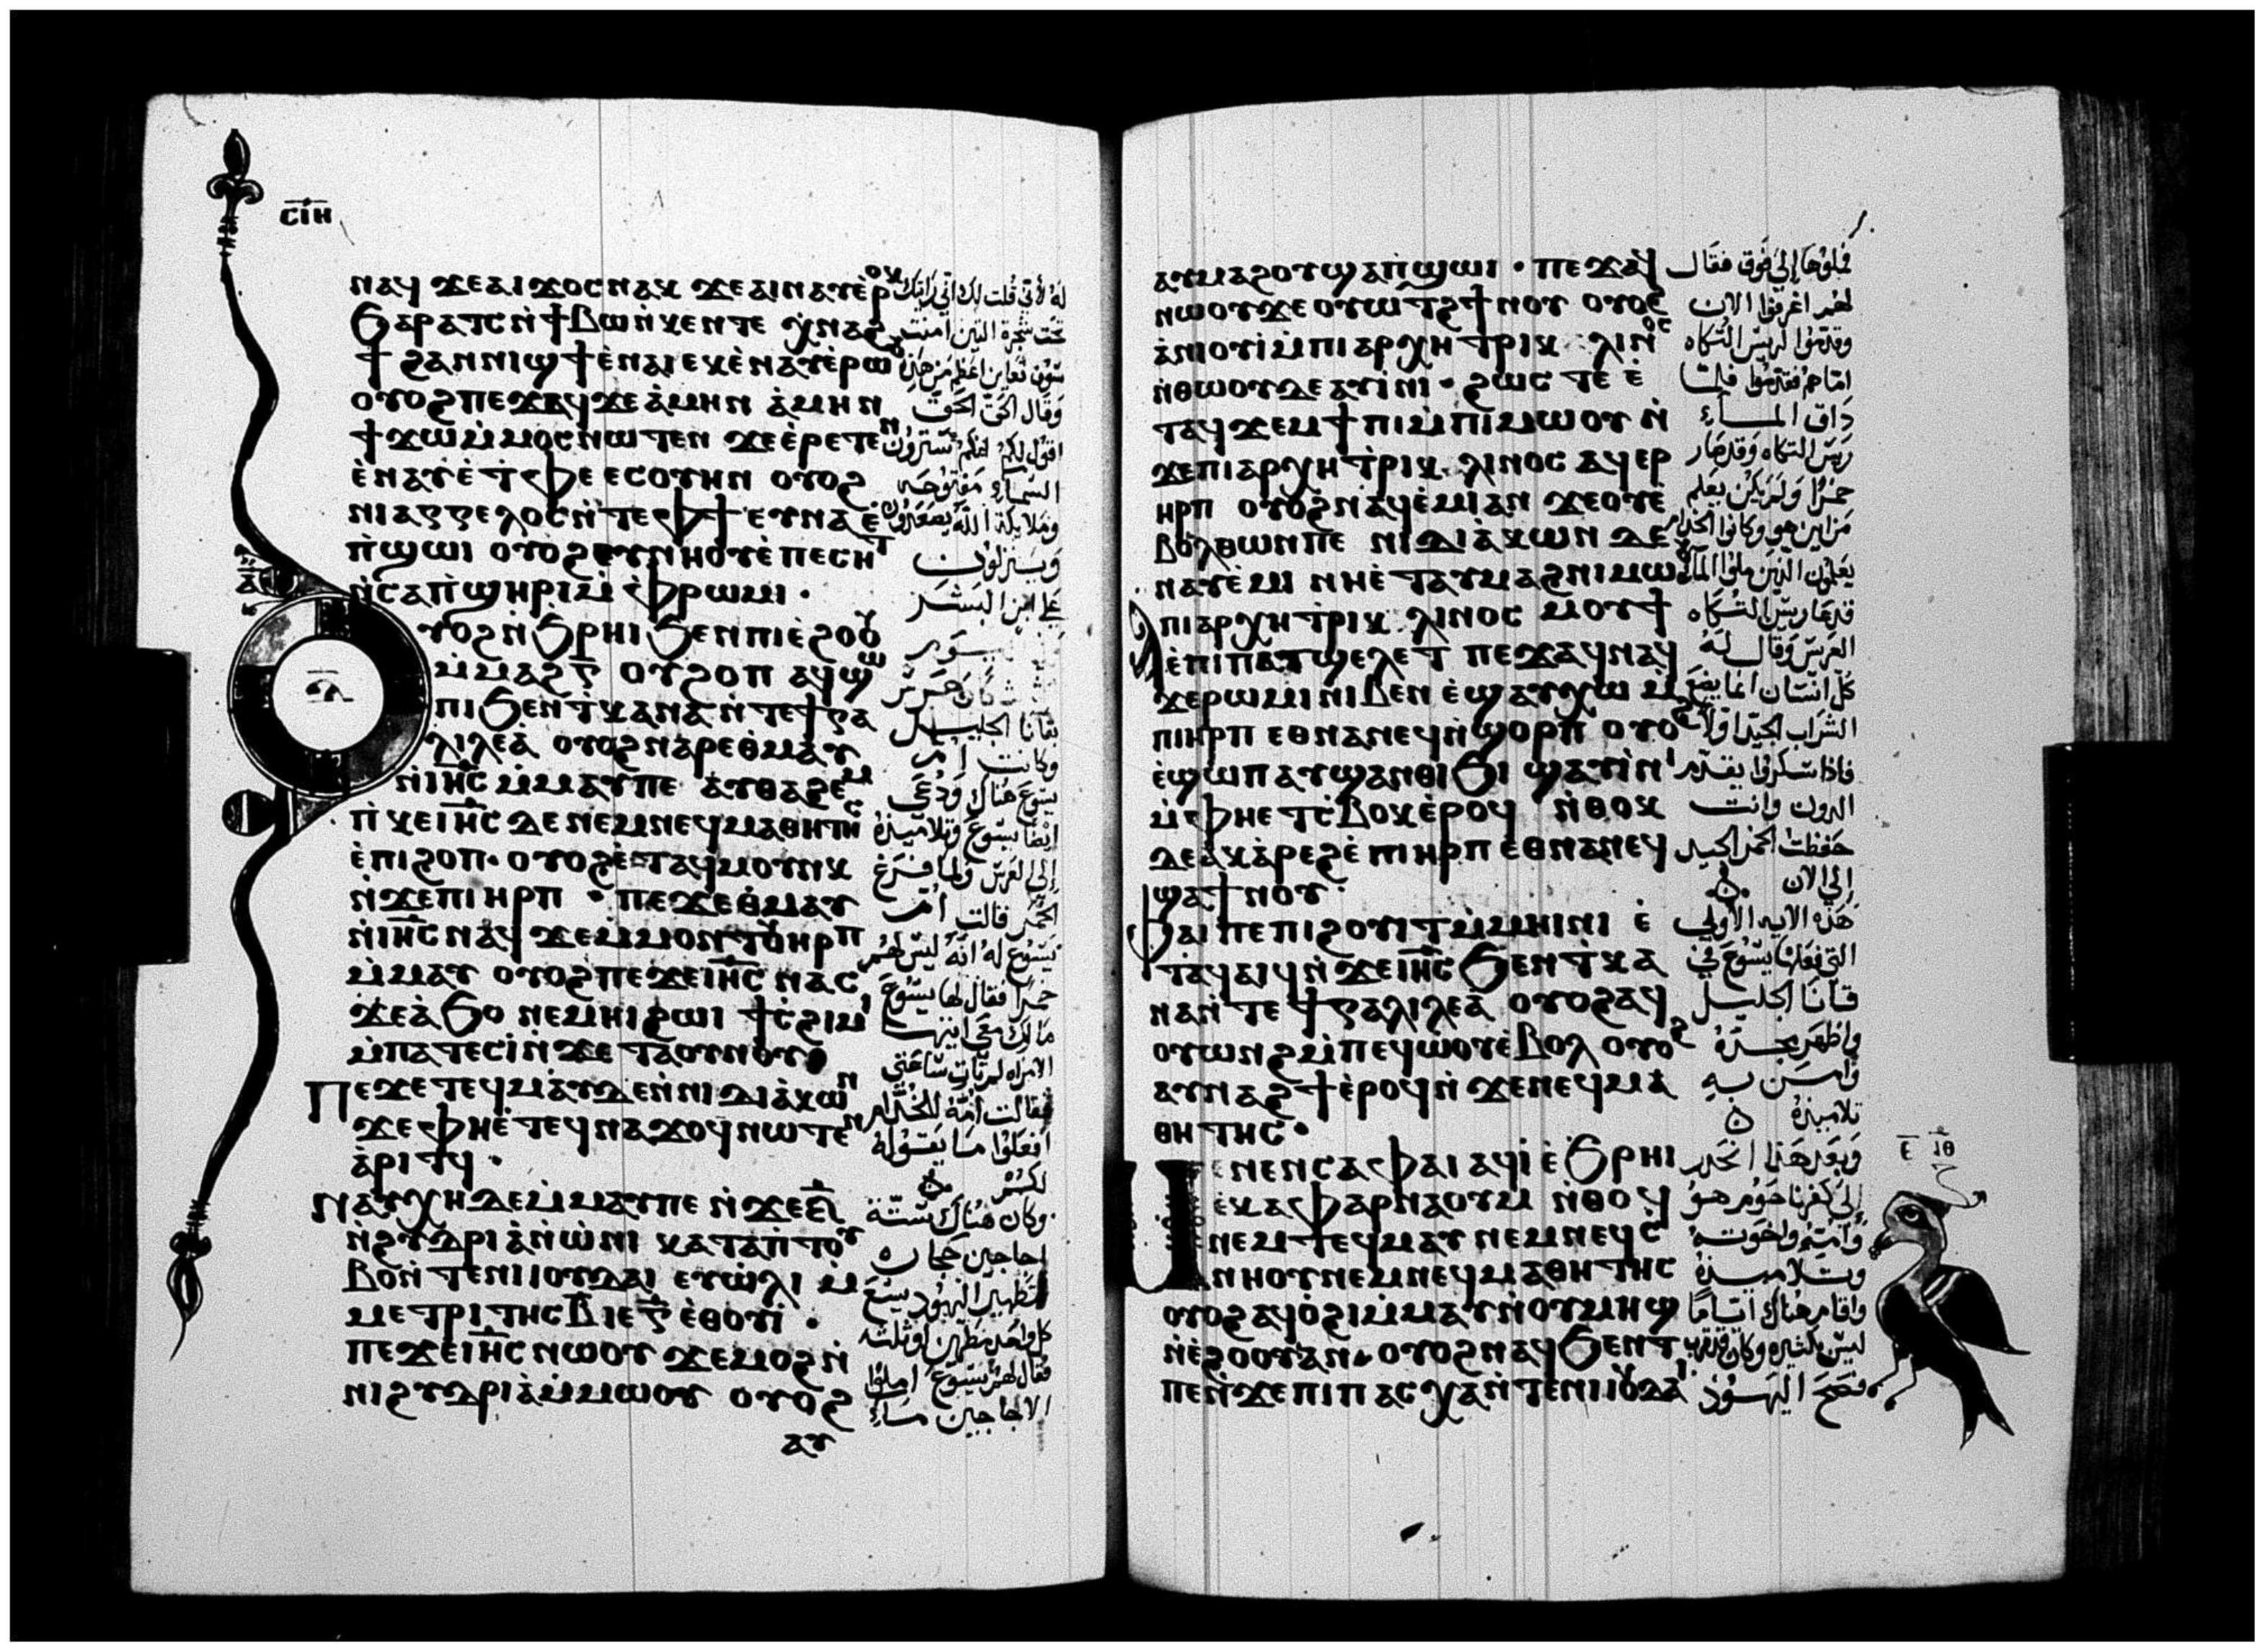 ⲥⲓⲏ
ⲛⲁϥ ϫⲉⲁⲓϫⲟⲥⲛⲁⲕ ϫⲉⲁⲓⲛⲁⲩⲉ̀ⲣⲟⲕ
ϧⲁⲣⲁⲧⲥⲛ̀ϯⲃⲱⲛ̀ⲕⲉⲛⲧⲉ ⲭⲛⲁϩ
ϯ ϩⲁⲛⲛⲓϣϯⲉ̀ⲛⲁⲓ ⲉⲕⲉ̀ⲛⲁⲩⲉ̀ⲣⲱⲟⲩ
ⲟⲩⲟϩⲡⲉϫⲁϥϫⲉⲁ̀ⲙⲏⲛ ⲁ̀ⲙⲏⲛ
ϯϫⲱⲙ̀ⲙⲟⲥⲛⲱⲧⲉⲛ ϫⲉⲉ̀ⲣⲉⲧⲉⲛ
ⲉ̀ⲛⲁⲩⲉ̀ⲧ̀ⲫⲉ ⲉⲥⲟⲩⲏⲛ ⲟⲩⲟϩ
ⲛⲓⲁⲅⲅⲉⲗⲟⲥⲛ̀ⲧⲉⲫϯ ⲉⲩⲛⲁⲉ̀
ⲡ̀ϣⲱⲓ ⲟⲩⲟϩⲉⲩⲛⲏⲟⲩⲉ̀ⲡⲉⲥⲏⲧ
ⲛ̀ⲥⲁⲡ̀ϣⲏⲣⲓⲙ̀ⲫⲣⲱⲙⲓ ·
ⲩⲟϩⲛ̀ϧⲣⲏⲓϧⲉⲛⲡⲓⲉ̀ϩⲟⲟⲩ
ⲙ̀ⲙⲁϩⲅ̅ ⲟⲩϩⲟⲡ ⲁϥϣⲱ
ⲡⲓϧⲉⲛⲧ̀ⲕⲁⲛⲁⲛ̀ⲧⲉϯⲅⲁ
ⲗⲓⲗⲉⲁ̀ ⲟⲩⲟϩⲛⲁⲣⲉⲑ̀ⲙⲁⲩ
ⲛ̀ⲓⲏ̅ⲥ ⲙ̀ⲙⲁⲩⲡⲉ ⲁⲩⲑⲁϩⲉⲙ
ⲡ̀ⲕⲉⲓⲏ̅ⲥ ⲇⲉ ⲛⲉⲙⲛⲉϥⲙⲁⲑⲏⲧⲏⲥ
ⲉ̀ⲡⲓϩⲟⲡ· ⲟⲩⲟϩⲉ̀ⲧⲁϥⲙⲟⲩⲛⲕ
ⲛ̀ϫⲉⲡⲓⲏⲣⲡ · ⲡⲉϫⲉⲑ̀ⲙⲁⲩ
ⲛ̀ⲓⲏ̅ⲥⲛⲁϥ ϫⲉⲙ̀ⲙⲟⲛⲧⲟⲩⲏⲣⲡ
ⲙ̀ⲙⲁⲩ ⲟⲩⲟϩⲡⲉϫⲉⲓⲏ̅ⲥ ⲛⲁⲥ
ϫⲉⲁ̀ϧⲟ ⲛⲉⲙⲏⲓϩⲱⲓ ϯⲥ̀ϩⲓⲙⲓ
ⲙ̀ⲡⲁⲧⲉⲥⲓ̀ⲛ̀ϫⲉ ⲧⲁⲟⲩⲛⲟⲩ
ⲡⲉϫⲉⲧⲉϥⲙⲁⲩⲇⲉⲛ̀ⲛⲓⲇⲓⲁ̀ⲕⲱⲛ
ϫⲉⲫⲏⲉ̀ⲧⲉϥⲛⲁϫⲟϥⲛⲱⲧⲉⲛ
ⲁ̀ⲣⲓⲧϥ ·
ⲛⲁⲩⲭⲏⲇⲉⲙ̀ⲙⲁⲩⲡⲉ ⲛ̀ϫⲉ
ⲛ̀ϩⲩⲇⲣⲓⲁ̀ⲛ̀ⲱ̀ⲛⲓ ⲕⲁⲧⲁⲡ̀ⲧⲟⲩ
ⲃⲟⲛ̀ⲧⲉⲛⲓⲓⲟⲩⲇⲁⲓ ⲉⲩⲱ̀ⲗⲓ ⲙ
ⲙⲉⲧⲣⲓⲧⲏⲥ ⲃ̅ ⲓⲉ ⲅ̅ ⲉ̀ⲑⲟⲩⲓ̀ ·
ⲡⲉϫⲉⲓⲏ̅ⲥ ⲛⲱⲟⲩ ϫⲉⲙⲟϩⲛ̀
ⲛⲓϩⲩⲇⲣⲓⲁ̀ⲙ̀ⲙⲱⲟⲩ ⲟⲩⲟϩ
ⲁⲩ
له لأني قلت لك أني رأيتك
تحت شجرة التين امنت
سوف تعاين اعظم من هذا
وقال الحق الحق
اقول لكم انكم سترون
السماء مفتوحه
وملايكة الله يصعدون
وينزلون
على ابن البشر
بقانا الجليل
وكانت ام
يسوع هناك ودعى
ايضا يسوع وتلاميذه
إلى العرس ولما فرغ
الخمر قالت ام
يسوع له انه ليس لهم
خمرا فقال لها يسوع
الامراه لم تات ساعتي
فقالت امه للخدام
افعلوا ما يقوله
لكم
وكان هناك ستة
اجاجين حجاره
لتطهير اليهود يسع
كل واحد مطرين او ثلثه
فقال لهم يسوع املوا
الاجاجين ماء
ⲁⲩⲙⲁϩⲟⲩϣⲁⲡ̀ϣⲱⲓ · ⲡⲉϫⲁϥ
ⲛⲱⲟⲩϫⲉ ⲟⲩⲱⲧϩϯⲛⲟⲩ ⲟⲩⲟϩ
ⲁ̀ⲛⲓⲟⲩⲓ̀ⲙ̀ⲡⲓⲁⲣⲭⲏⲧⲣⲓⲕⲗⲓⲛⲟⲥ
ⲛ̀ⲑⲱⲟⲩⲇⲉ ⲁⲩⲓ̀ⲛⲓ · ϩⲱⲥ ⲧⲉ ⲉ̀
ⲧⲁϥϫⲉⲙϯⲡⲓⲙ̀ⲡⲓⲙⲱⲟⲩ ⲛ̀
ϫⲉⲡⲓⲁⲣⲭⲏⲧ̀ⲣⲓⲕⲗⲓⲛⲟⲥ ⲁϥⲉⲣ
ⲏⲣⲡ ⲟⲩⲟϩⲛⲁϥⲉ̀ⲙⲓⲁⲛ ϫⲉⲟⲩⲉ̀
ⲃⲟⲗⲑⲱⲛⲡⲉ ⲛⲓⲇⲓⲁ̀ⲕⲱⲛ ⲇⲉ
ⲛⲁⲩⲉ̀ⲙⲓ ⲛⲏⲉ̀ⲧⲁⲩⲙⲁϩⲛⲓⲙⲱⲟⲩ
ⲡⲓⲁⲣⲭⲏⲧ̀ⲣⲓⲕⲗⲓⲛⲟⲥ ⲙⲟⲩϯ
ⲉ̀ⲡⲓⲡⲁⲧϣⲉⲗⲉⲧ ⲡⲉϫⲁϥⲛⲁϥ
ϫⲉⲣⲱⲙⲓ ⲛⲓⲃⲉⲛ ⲉ̀ϣⲁⲩⲭⲱ ⲙ̀
ⲡⲓⲏⲣⲡ ⲉⲑⲛⲁⲛⲉϥⲛ̀ϣⲟⲣⲡ ⲟⲩⲟϩ
ⲉ̀ϣⲱⲡ ⲁⲩϣⲁⲛⲑⲓϧⲓ ϣⲁⲩⲓ̀ⲛⲓ
ⲙ̀ⲫⲏⲉⲧⲥ̀ⲃⲟⲕⲉ̀ⲣⲟϥ ⲛ̀ⲑⲟⲕ
ⲇⲉⲁ̀ⲕⲁ̀ⲣⲉϩⲉ̀ⲡⲓⲏⲣⲡ ⲉ̀ⲑⲛⲁⲛⲉϥ
ϣⲁϯⲛⲟⲩ·
ⲫⲁⲓ ⲡⲉ ⲡⲓϩⲟⲩⲓⲧⲙ̀ⲙⲏⲓⲛⲓ ⲉ̀
ⲧⲁϥⲁⲓϥⲛ̀ϫⲉⲓⲏ̅ⲥ ϧⲉⲛⲧ̀ⲕⲁ
ⲛⲁⲛ̀ⲧⲉϯⲅⲁⲗⲓⲗⲉⲁ̀ ⲟⲩⲟϩⲁϥ
ⲟⲩⲱⲛϩⲙ̀ⲡⲉϥⲱ̀ⲟⲩⲉ̀ⲃⲟⲗ ⲟⲩⲟϩ
ⲁⲩⲛⲁϩϯⲉ̀ⲣⲟϥⲛ̀ϫⲉⲛⲉϥⲙⲁ
ⲑⲏⲧⲏⲥ·
ⲙⲉⲛⲉⲛⲥⲁⲫⲁⲓ ⲁϥⲓ̀ ⲉ̀ϧⲣⲏⲓ
ⲉ̀ⲕⲁⲫⲁⲣⲛⲁⲟⲩⲙ ⲛ̀ⲑⲟϥ
ⲛⲉⲙⲧⲉϥⲙⲁⲩ ⲛⲉⲙⲛⲉϥⲥ̀
ⲛⲏⲟⲩⲛⲉⲙⲛⲉϥⲙⲁⲑⲏⲧⲏⲥ
ⲟⲩⲟϩⲁϥⲟ̀ϩⲓⲙ̀ⲙⲁⲩⲛ̀ⲟⲩⲙⲏϣ
ⲛ̀ⲉ̀ϩⲟⲟⲩⲁⲛ· ⲟⲩⲟϩⲛⲁϥϧⲉⲛⲧ
ⲡⲉⲛ̀ϫⲉⲡⲓⲡⲁⲥⲭⲁⲛ̀ⲧⲉⲛⲓⲓⲟⲩⲇⲁⲓ
فملوها إلى فوق فقال
لهم اغرفوا الان
وقدموا لريس التكاه
اما هم فقدموا فلما
ذاق الماء
ريس التكاه وقد صار
خمرا ولم يكن يعلم
من اين هو وكانوا الخدام
يعلمون الذين ملوا الماء
قدعا ريس التكاه
العريس وقال له
كل انسان انما يضع
الشراب الجيد اولا
فاذا سكروا يقدم
الدون وانت
حفظت الخمر الجيد
إلى الان
هذه الايه الأولى
التي فعلها يسوع في
قانا الجليل
واظهر مجده
وامن به
تلاميذه
وبعد هذا انحدر
إلى كفرناحوم هو
وامه واخوته
وتلاميذه
واقام هناك اياما
ليس بكثيره وكان قد قرب
فصح اليهود
ⲉ̅ ⲓⲑ̅